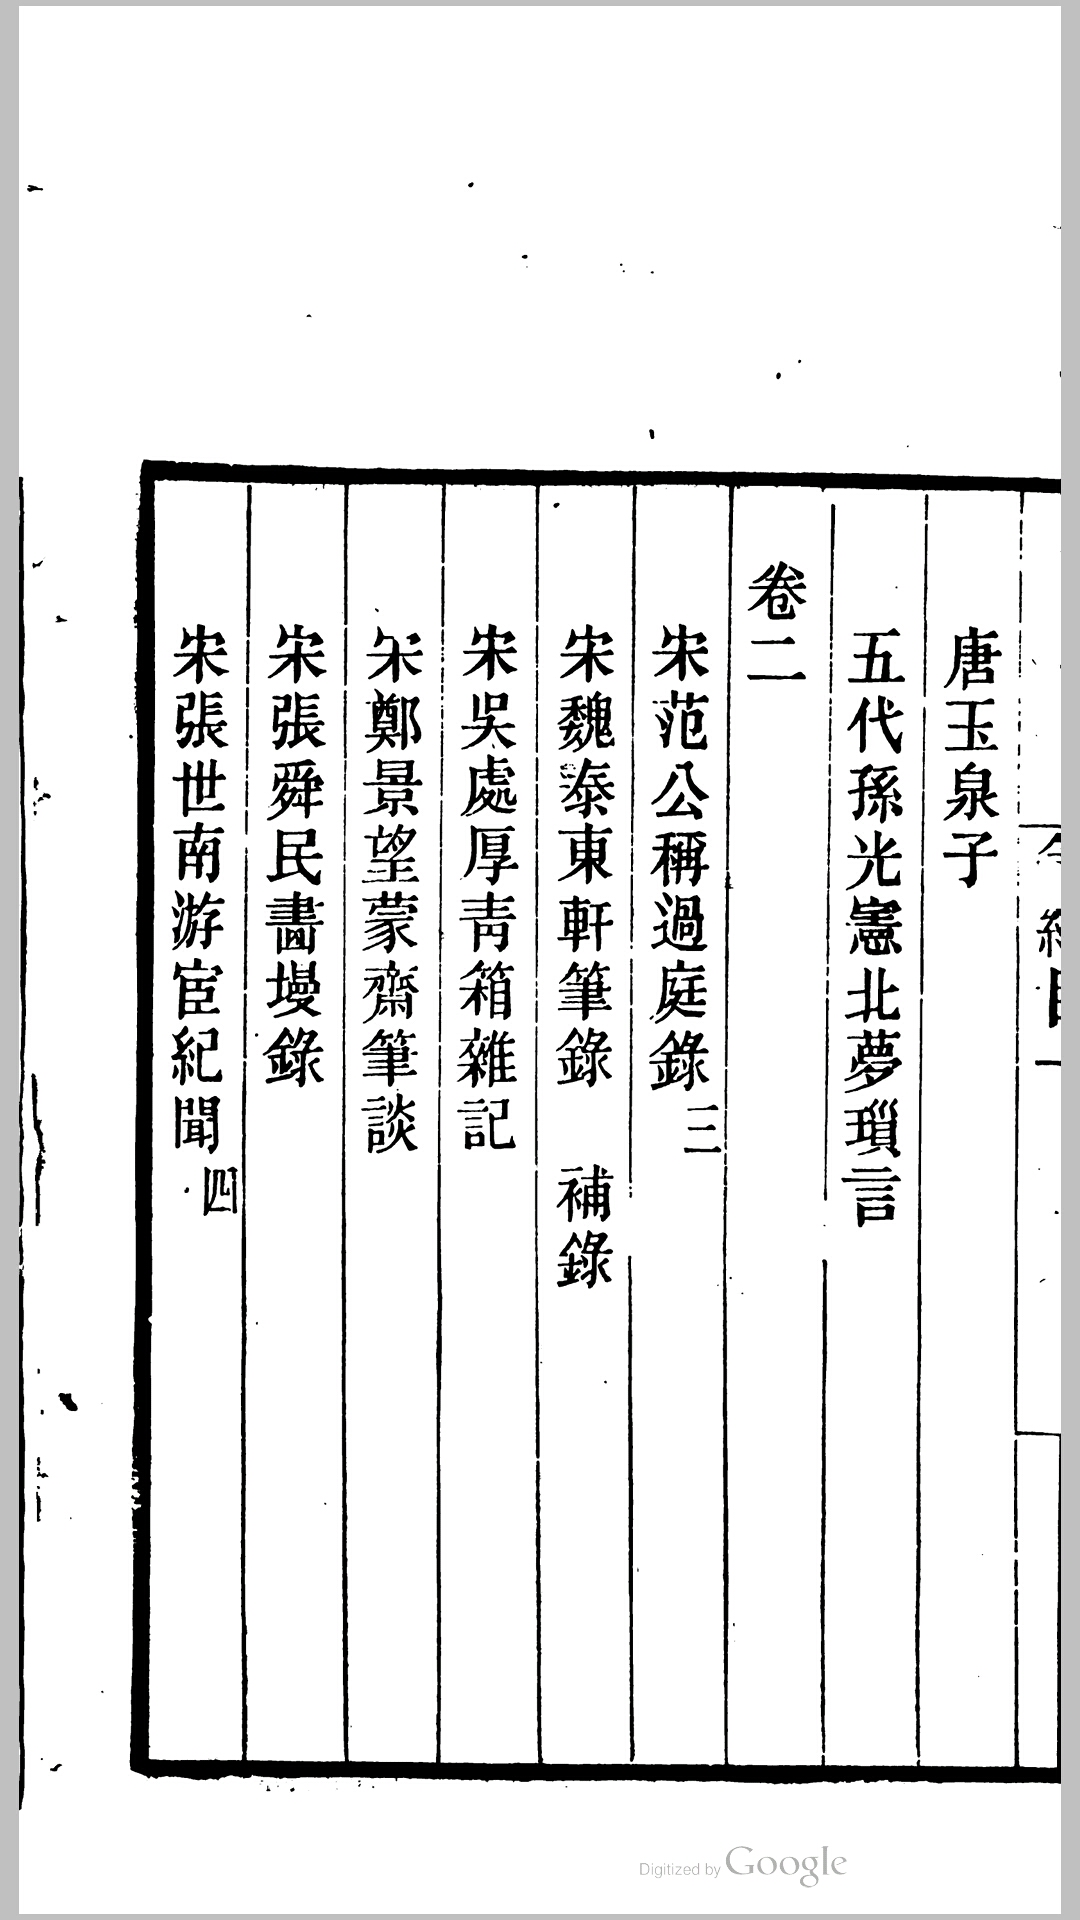 唐玉泉子
五代孫光憲北夢瑣言
卷二
宋范公稱過庭錄三
宋魏泰東軒筆錄 補錄
宋吳處厚青箱雜記
宋鄭景望蒙齋筆談
宋張舜民畫墁錄
宋張世南游宦紀聞四
Digitized by Google